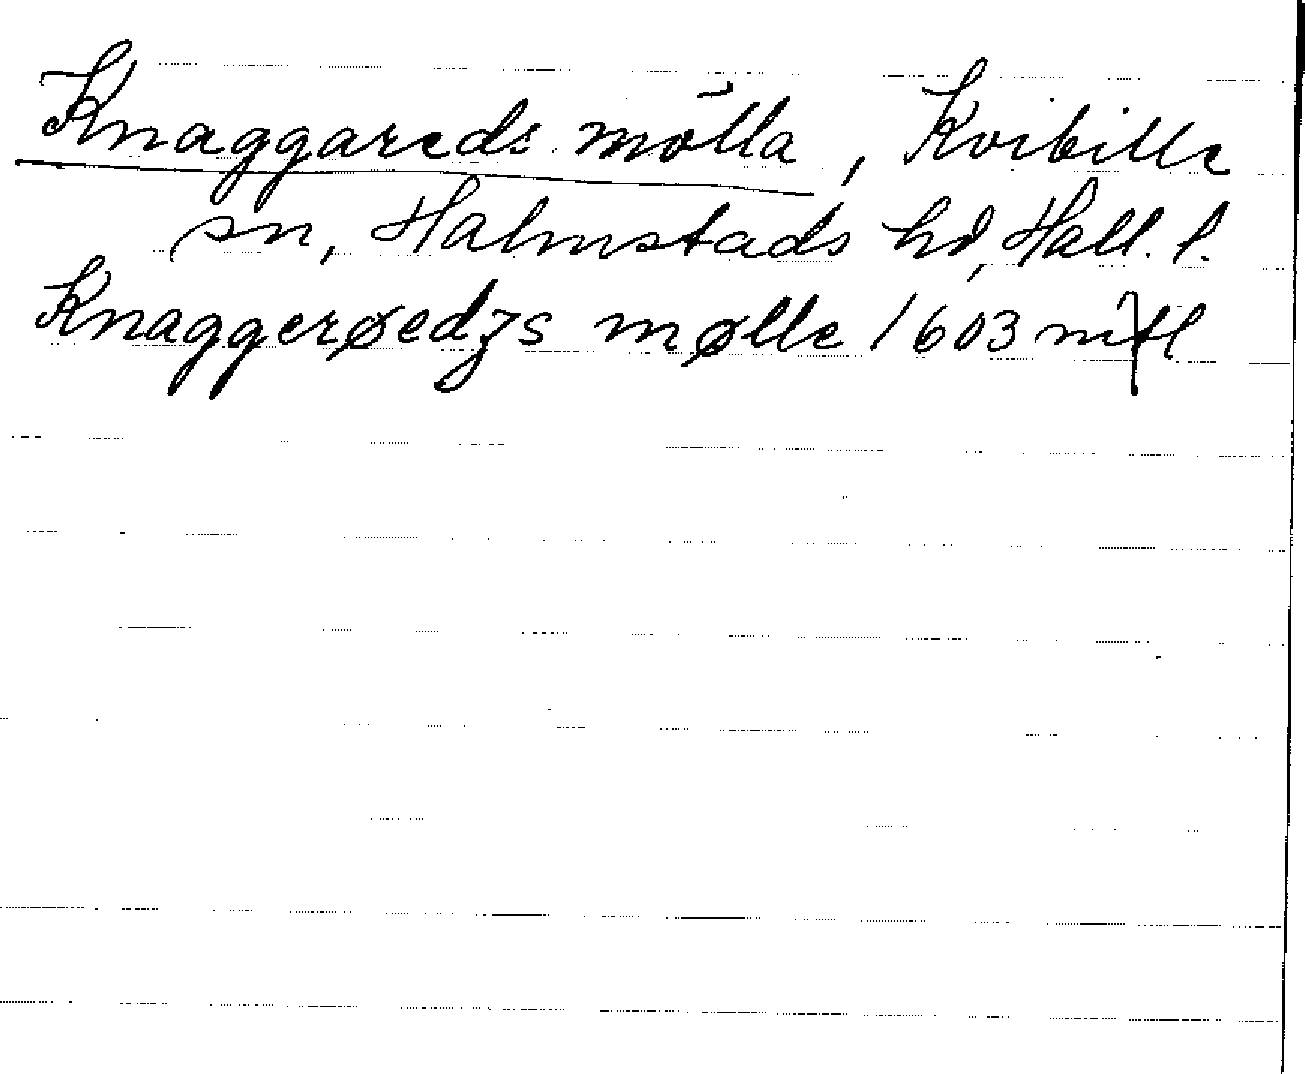 Knaggareds mölla, Kvibille
sn, Halmstads hd, Hall. l.
Knaggerøedzs mølle 1603